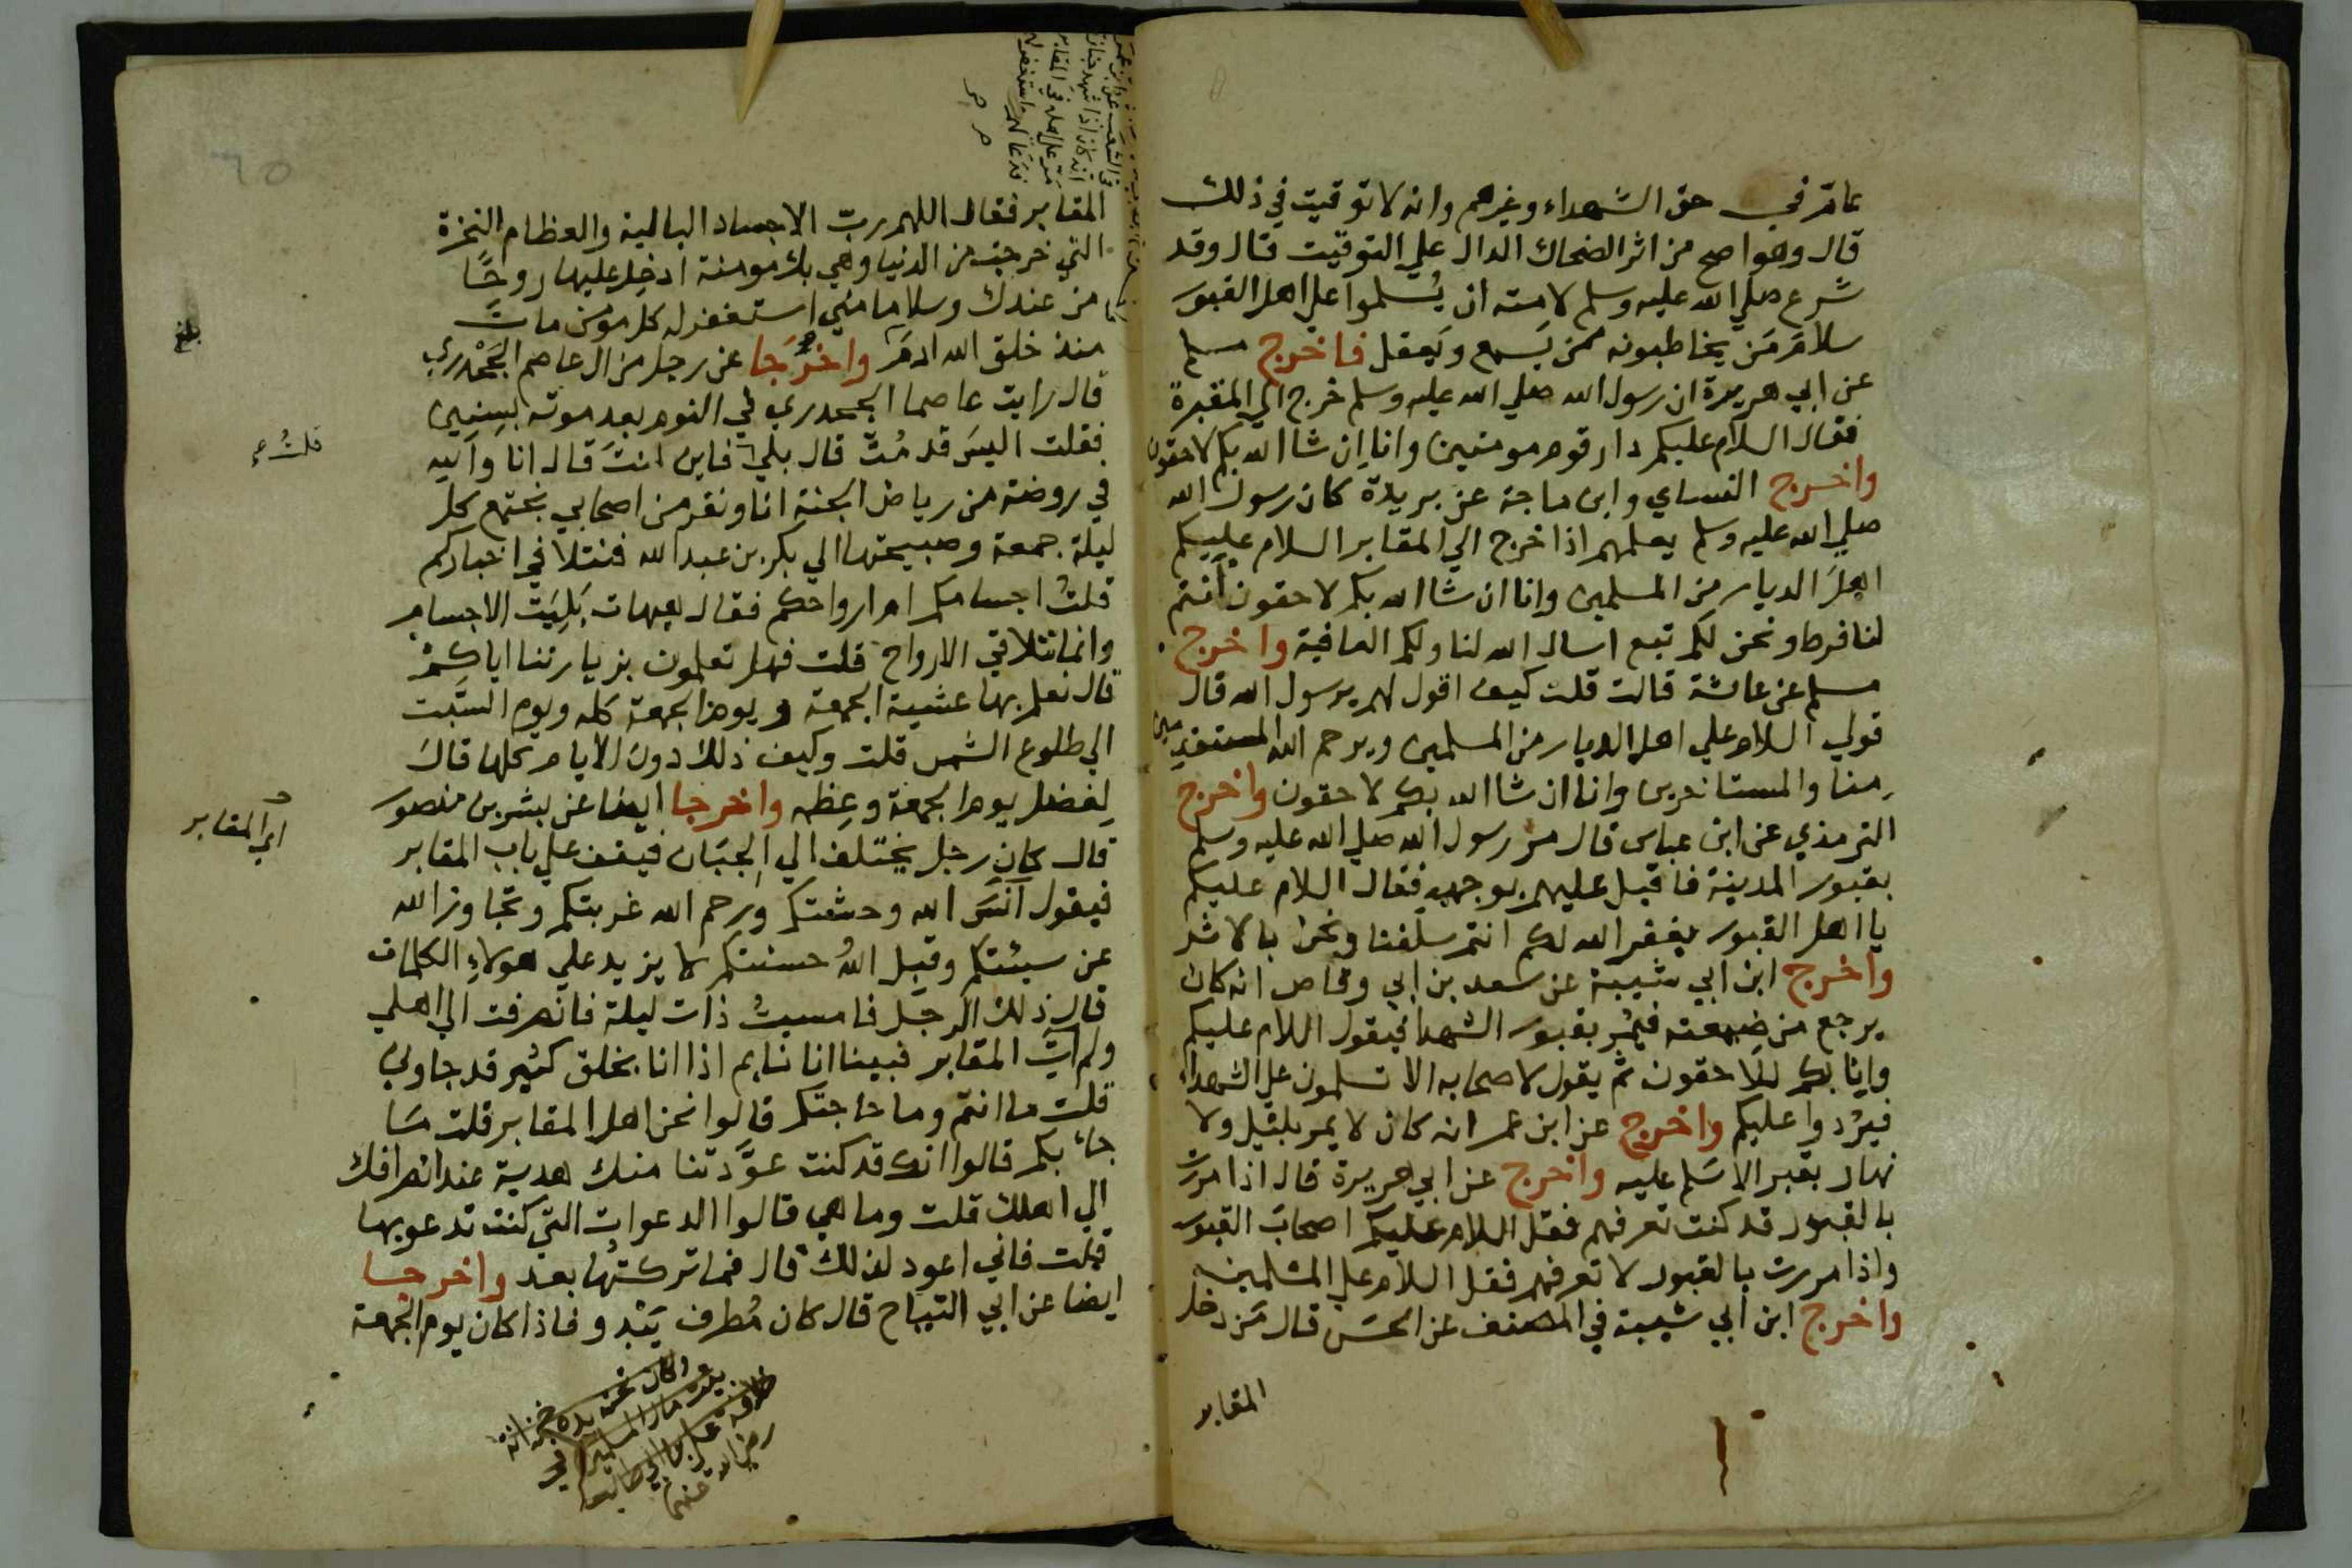 عام في حق الشهداء وغيرهم وانه لا توقيت في ذلك
قال وهو اصح من اثر الضحاك الدال علي التوقيت قال وقد
شرع صلي الله عليه وسلم لامته ان يُسلموا علي اهل القبور
سلامَ مَن يخاطبونه ممن يَسمع ويَعقل فاخرج مسلم
عن ابي هريرة ان رسول الله صلي الله عليه وسلم خرج الي المقبرة
فقال السلام عليكم دار قوم مومنين وانا اِن شا الله بكم لاحقون
واخرج النساي وابن ماجة عن بريدة كان رسول الله
صلي الله عليه وسلم يعلمهم اذا خرج الي المقابر السلام عليكم
اهلَ الديار من المسلمين وانا ان شا الله بكم لاحقون انتم
لنا فرط ونحن لكم تبع اسال الله لنا ولكم العافية واخرج
مسلم عن عائشة قالت قلت كيف اقول لهم يرسول الله قال
قولي السلام علي اهل الديار من المسلمين ويرحم الله المستقدمين
منا والمستاخرين وانا ان شا الله بكم لاحقون واخرج
الترمذي عن ابن عباس قال مر رسول الله صلي الله عليه وسلم
بقبور المدينة فاقبل عليهم بوجهه فقال السلام عليكم
يا اهل القبور يغفر الله لكم انتم سلفنا ونحن بالاثر
واخرج ابن ابي شيبة عن سعد بن ابي وقاص انه كان
يرجع من ضيعته فيمُر بقبور الشهدا فيقول السلام عليكم
وانا بكم للاحقون ثم يقول لاصحابه الا تسلمون علي الشهداء
فيردوا عليكم واخرج عن ابن عمر انه كان لا يمر بليل ولا
نهار بقبر الا سَلم عليه واخرج عن ابي هريرة قال اذا مررت
بالقبور قد كنت تعرفهم فقل السلام عليكم اصحابَ القبور
واذا مررت بالقبور لا تعرفهم فقل السلام علي المسلمين
واخرج ابن ابي شيبة في المصنف عن الحسَن قال مَن دخل
المقابر
المقابر فقال اللهم ربّ الاجساد البالية والعظام النخرة
التي خرجت من الدنيا وهي بك مومنة ادخِل عليها روحًا
من عندك وسلاما مني استغفر له كل مومن مات
منذ خلق الله ادمَ واخرَجا عن رجل من ال عاصم الجَحْدري
قال رايت عاصما الجحدري في النوم بعد موته بسِنين
فقلت اليسَ قد مُتّ قال بلي فاين انتَ قال انا والله
في روضة من رياض الجنة انا ونفر من اصحابي نجتمع كل
ليلة جمعة وصبيحتها الي بكر بن عبد الله فنتلاقي اخباركم
قلتُ اجسامكم ام ارواحكم فقال هيهات بَلِيَت الاجسام
وانما تتلاقي الارواح قلت فهل تعلمون بزيارتنا اياكمْ
قال نعلم بها عشية الجمعة ويوم الجمعة كله ويوم السَّبت
الي طلوع الشمس قلت وكيف ذلك دون الايام كلها قال
لِفضل يوم الجمعة وعِظمه واخرجا ايضا عن بشر بن منصور
قال كان رجل يختلف الي الجبّان فيقف علي باب المقابر
فيقول آنسَ الله وحشتكم ورحم الله غربتكم وتجاوز الله
عن سيئتكم وقبِل اللهُ حسنتكم لا يزيد علي هولاءِ الكلمات
قال ذلك الرجل فامسيتُ ذات ليلة فانصرفت الي اهلي
ولم آتِ المقابر فبينا انا نايم اذا انا بخلق كثير قد جاوني
قلت ما انتم وما حاجتكم قالوا نحن اهل المقابر قلت مَا
جاء بكم قالوا انك قد كنت عوَّدتنا منك هدية عند انصرافك
الي اهلك قلت وما هي قالوا الدعوات التي كنت تدعو بها
قلت فاني اعود لذلك قال فما تركتُها بعد واخرجا
ايضا عن ابي التياح قال كان مُطرف يَبْدو فاذا كان يوم الجمعة
بلغ
الي المقابر